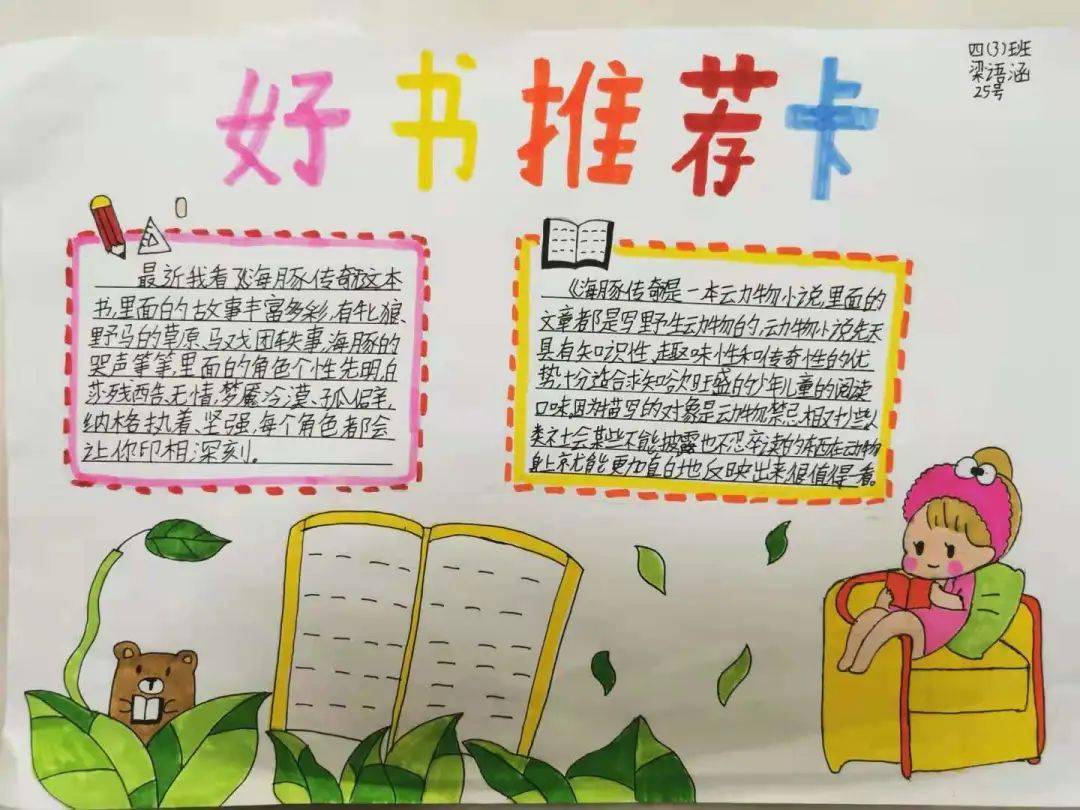 好书推荐卡
四(3)班
梁语涵
25号
最近我看了《海豚传奇》这本
书,里面的故事丰富多彩,有牝狼、
野马的草原、马戏团轶事,海豚的
哭声等等,里面的角色个性先明,白
莎残酷、无情,梦魇冷漠、孤僻,
纳格执着、坚强,每个角色都会
让你印相深刻。
《海豚传奇》是一本动物小说,里面的
文章都是写野生动物的,动物小说先天
具有知识性、趣味性和传奇性的优
势,十分适合求知欲旺盛的少年儿童的阅读
口味,因为描写的对象是动物,禁忌相对少些,人
类社会某些不能披露也不忍卒读的东西在动物
身上就能更加直白地反映出来,很值得看。